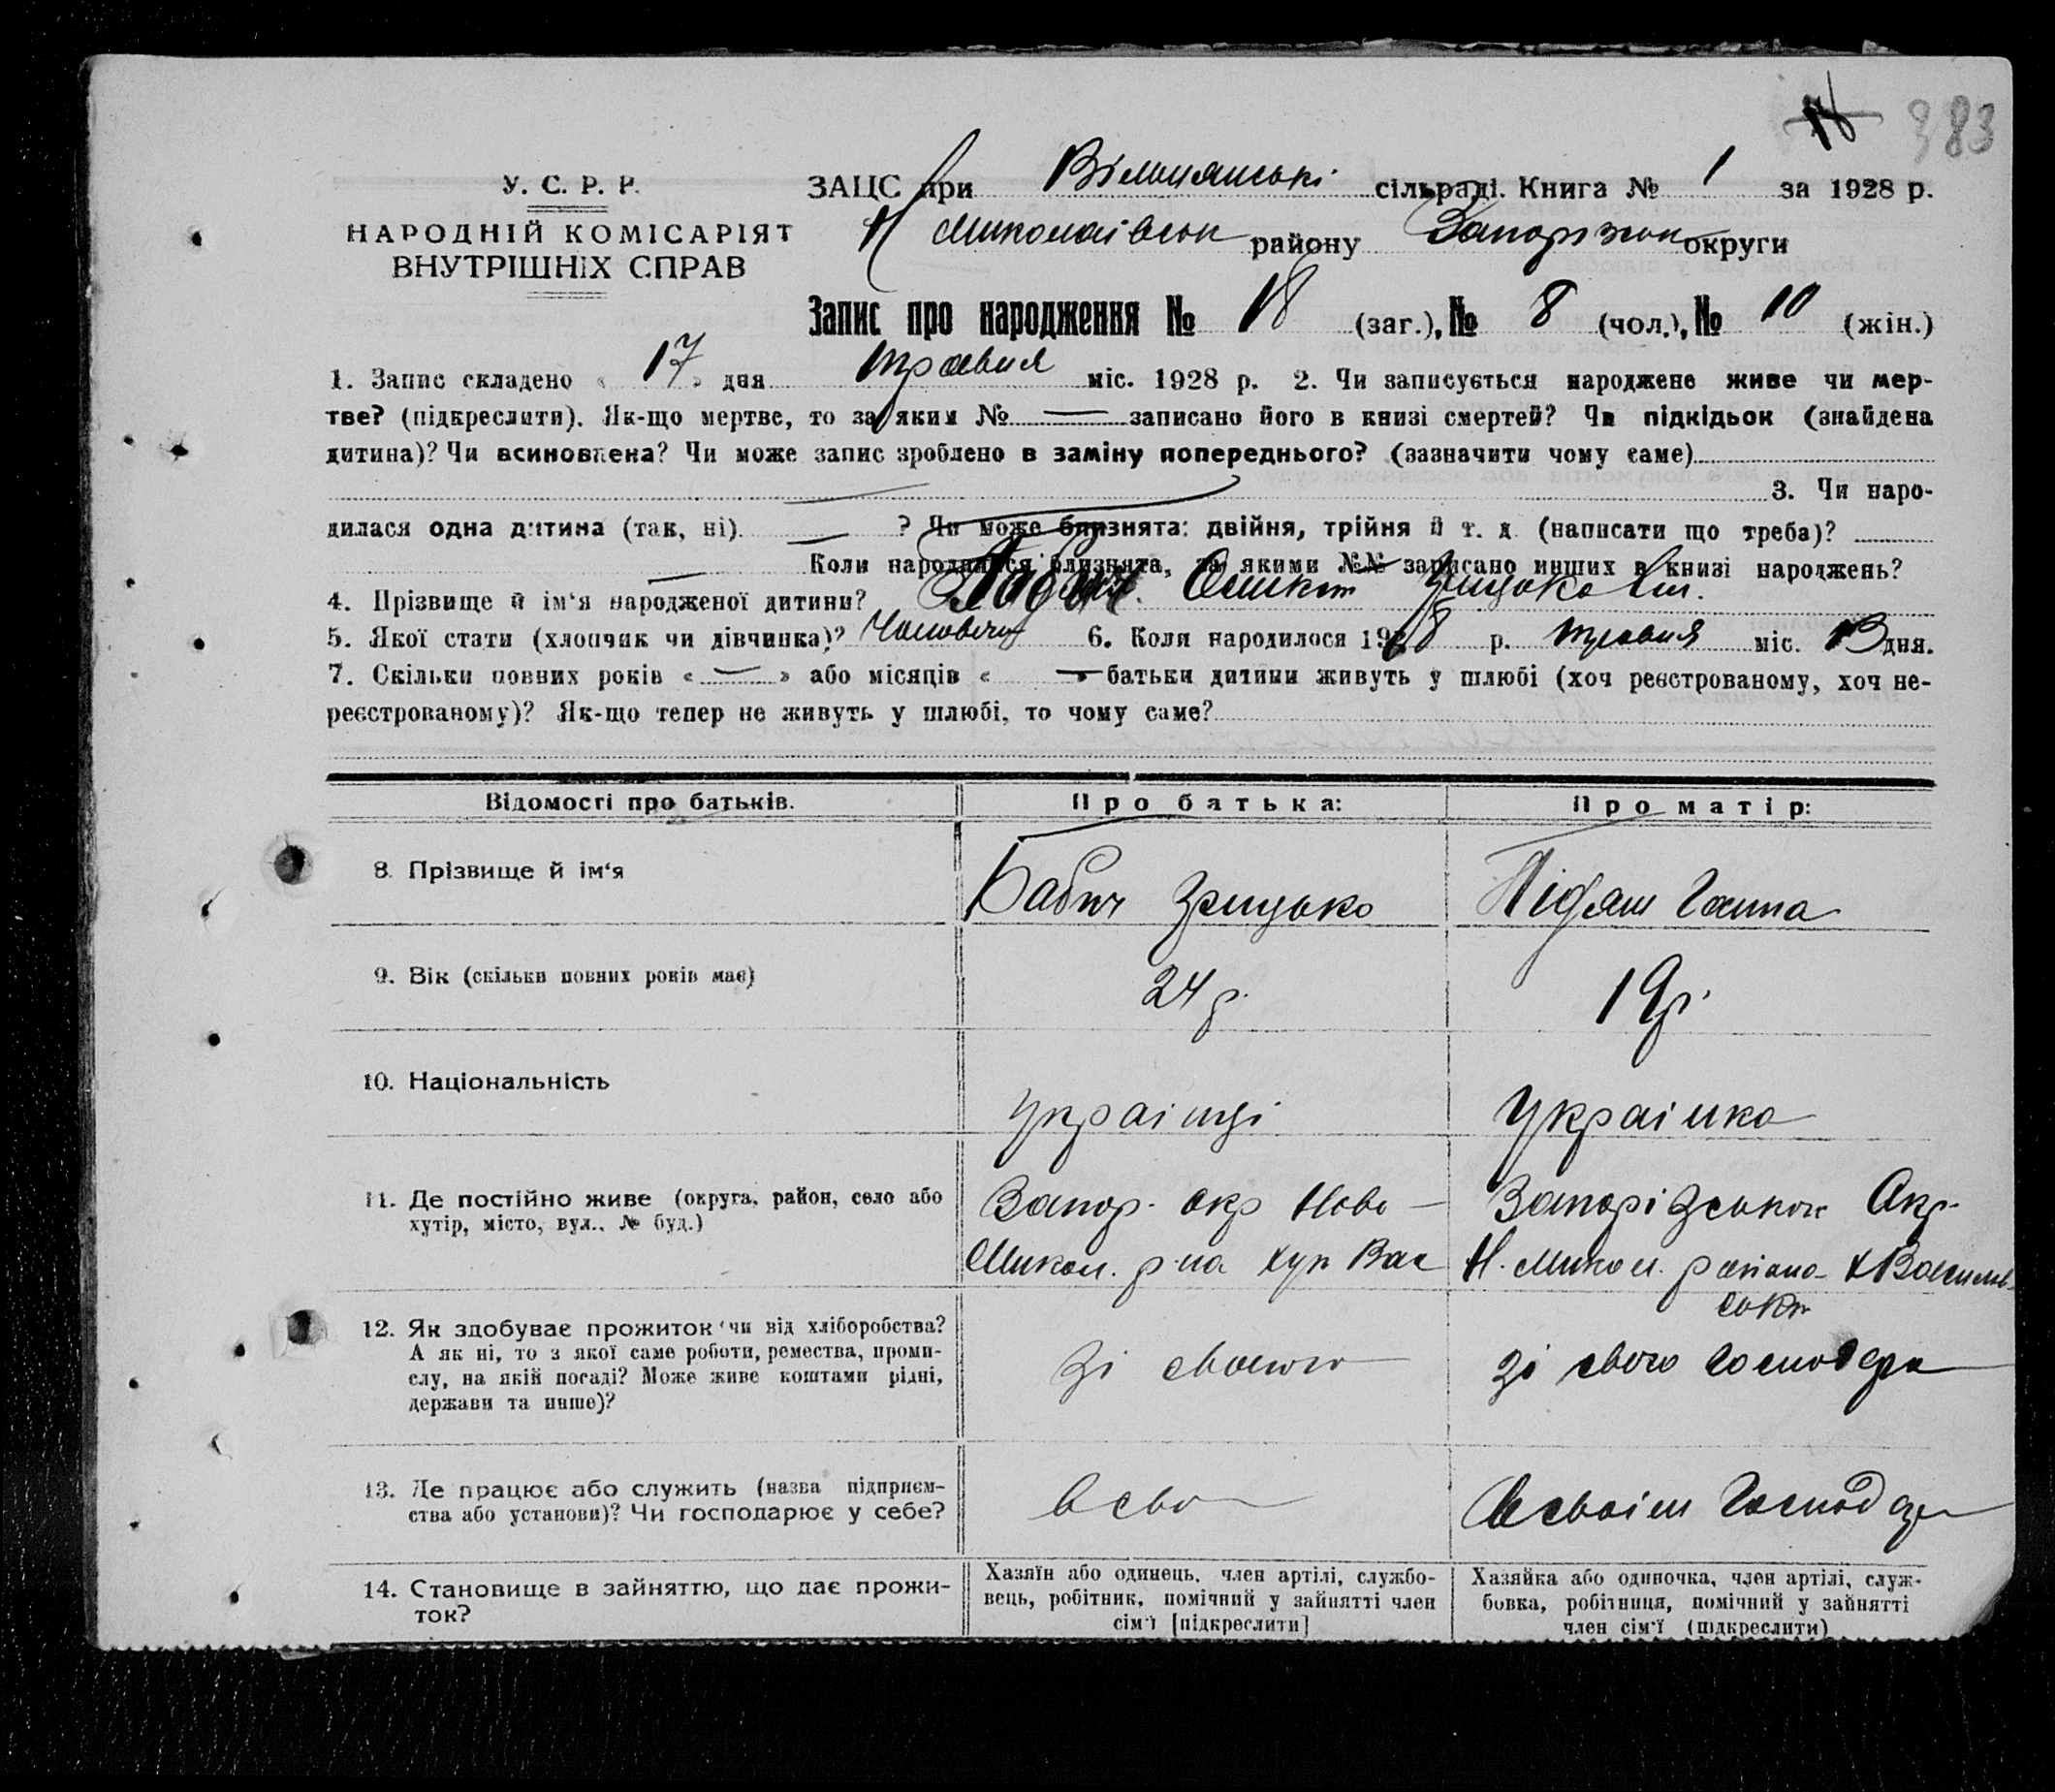 383
У. С. Р. Р.
НАРОДНІЙ КОМІСАРІЯТ
ВНУТРІШНІХ СПРАВ
ЗАЦС при Вільнянські сільраді. Книга № 1 за 1928 р.
Н Миколаівськ району Запорізьк округи
Запис про народження № 18 (заг.), № 8 (чол.), № 10 (жін.)
1. Запис складено « 17 » дня травня міс. 1928 р. 2. Чи записується народжене живе чи мер-
тве? (підкреслити). Як-що мертве, то за яким № — записано його в книзі смертей? Чи підкідьок (знайдена
дитина)? Чи всиновлена? Чи може запис зроблено в заміну попереднього? (зазначити чому саме)
3. Чи наро-
дилася одна дитина (так, ні) — ? Чи може близнята: двійня, трійня й т. д. (написати що треба)?
— Коли народилися близнята, за якими №№ записано инших в книзі народжень?
4. Прізвище й ім'я народженої дитини? Бабич
5. Якої стати (хлопчик чи дівчинка)? Чоловічої 6. Коли народилося 1928 р. травня міс. 13 дня.
7. Скільки повних років « — » або місяців « — » батьки дитини живуть у шлюбі (хоч реєстрованому, хоч не-
реєстрованому)? Як-що тепер не живуть у шлюбі, то чому саме?
Відомості про батьків. Про батька: Про матір:
8. Прізвище й ім'я Бабич Грицько Підяш Ганна
9. Вік (скільки повних років має) 24 р. 19 р.
10. Національність Украінці Украінка
11. Де постійно живе (округа, район, село або Запор. окр Ново — Запорізької Окр.
хутір, місто, вул., № буд.) Микол. р-на хут Вас Н. Микол. района х Васильв
ськи
12. Як здобуває прожиток чи від хліборобства?
А як ні, то з якої саме роботи, ремества, проми- зі свойого зі свого господар
слу, на якій посаді? Може живе коштами рідні,
держави та инше)?
13. Де працює або служить (назва підприєм- в сво в своім господар
ства або установи)? Чи господарює у себе?
14. Становище в зайняттю, що дає прожи-
ток?
Хазяїн або одинець, член артілі, службо-
вець, робітник, помічний у зайнятті член
сім'ї [підкреслити]
Хазяйка або одиночка, член артілі, служ-
бовка, робітниця, помічний у зайнятті
член сім'ї (підкреслити)